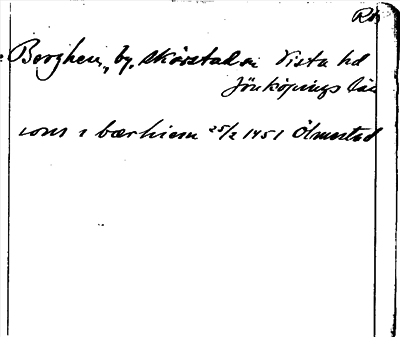 Ra
Berghem, by, Skärstad sn Vista hd
Jönköpings län
ions i bærhiem 25/2 1451 Ölmestad